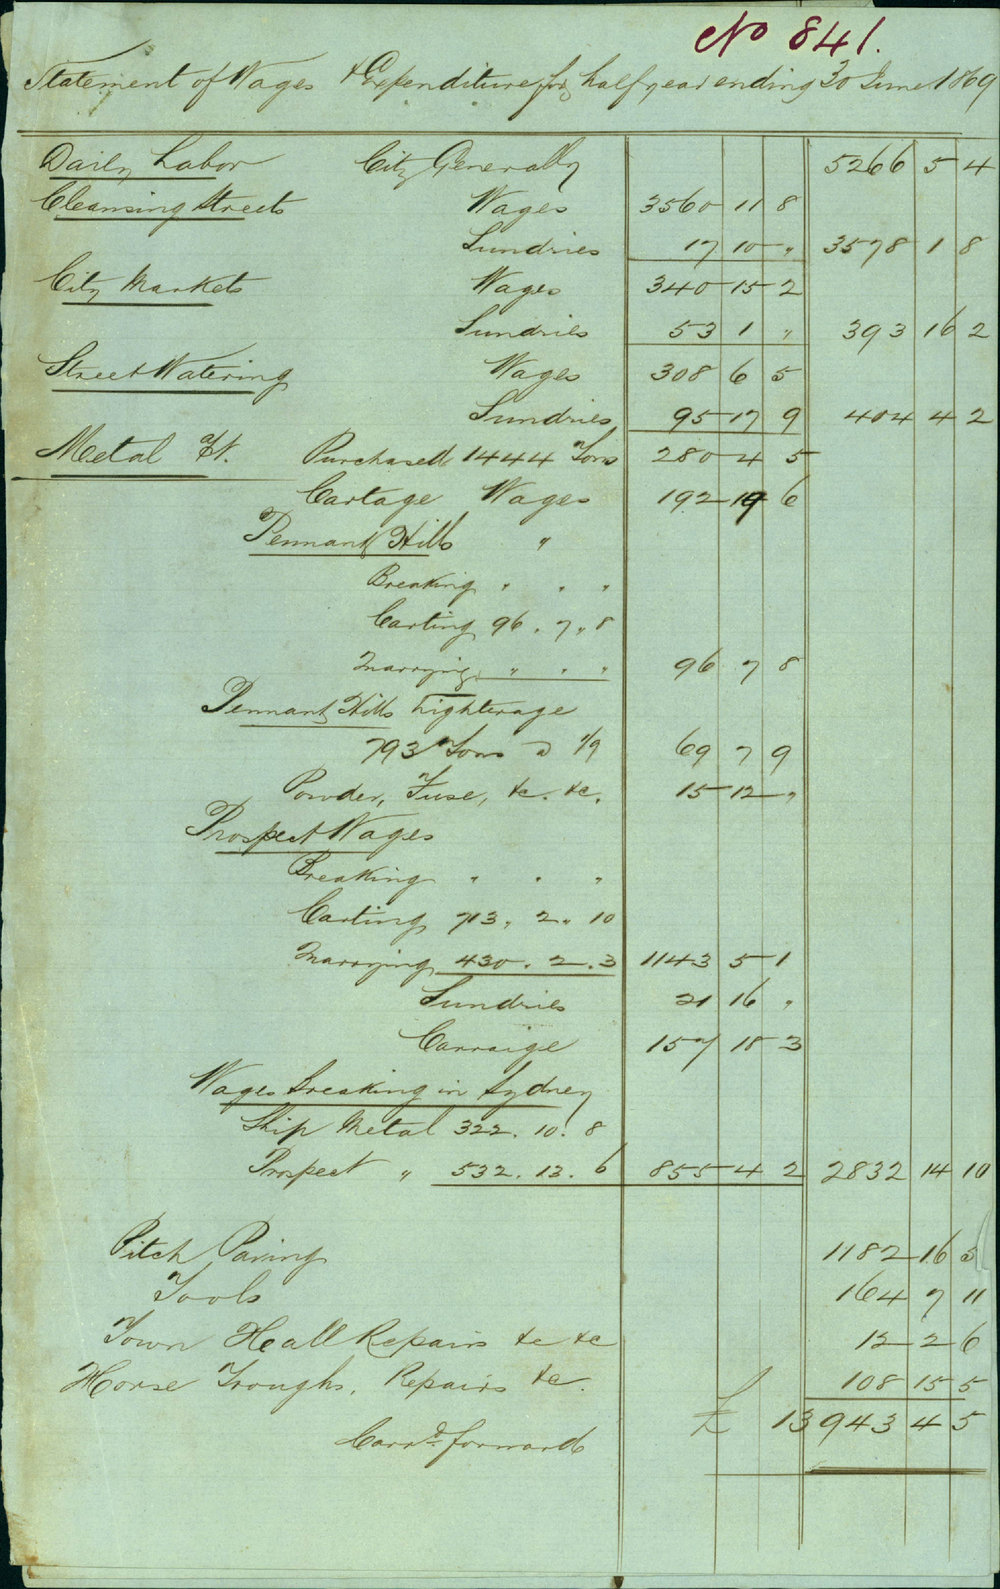 No 841.
Statement of Wages & Expenditure for half year ending 30 June 1869
Daily Labor City Generally 5266 5 4
Cleansing Streets Wages 3560 11 8
Sundries 17 10 " 3578 1 8
City Markets Wages 340 15 2
Sundries 53 1 " 393 16 2
Street Watering Wages 308 6 5
Sundries 95 17 9 404 4 2
Metal Purchased 1444 Tons 280 4 5
Cartage Wages 192 19 6
Pennant Hills "
Breaking " " "
Carting 96 . 7 " 8
Quarrying " " " 96 7 8
Pennant Hills Lighterage
793 Tons @ 1/9 69 7 9
Powder, Fuse, &c. &c. 15 12 "
Prospect Wages
Breaking " " "
Carting 713 " 2 " 10
Quarrying 430 . 2 . 3 1143 5 1
Sundries 21 16 "
Carraige 157 18 3
Wages Breaking in Sydney
Ship Metal 322 . 10 . 8
Prospect " 532 . 13 . 6 855 4 2 2832 14 10
Pitch Paving 1182 16 5
Tools 164 7 11
Town Hall Repairs &c &c 12 2 6
Horse Troughs, Repairs &c. 108 15 5
Carrd forward £ 13943 4 5